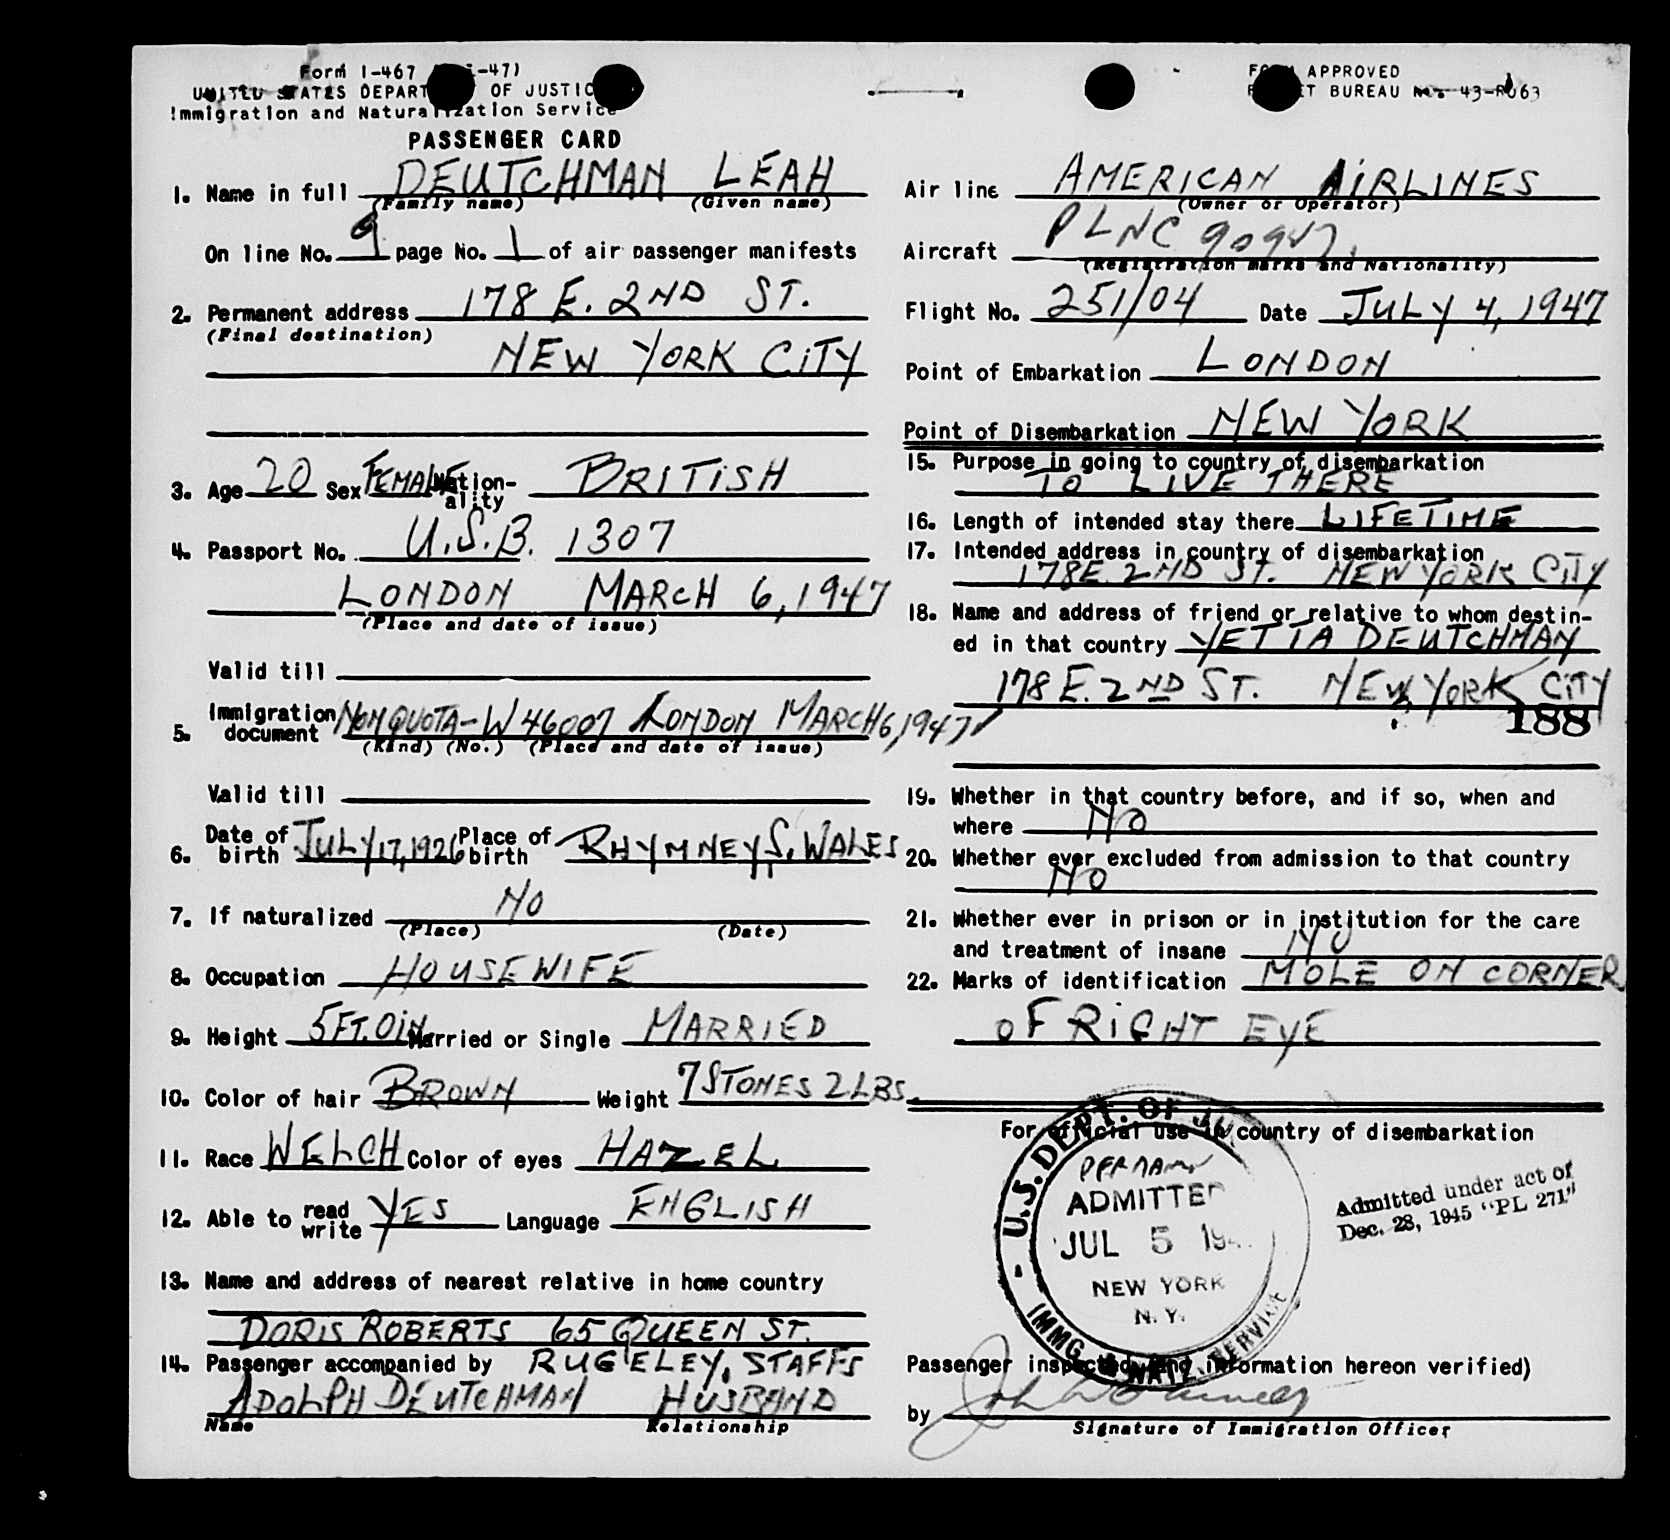 Form I-467 -47)
UNITED STATES DEPARTMENT OF JUSTICE
Immigration and Naturalization Service
PASSENGER CARD
1. Name in full DEUTCHMAN LEAH
(Family name) (Given name)
On line No. 9 page No. 1 of air passenger manifests
2. Permanent address 178 E. 2ND ST.
(Final destination)
NEW YORK CITY
3. Age 20 Sex FEMALE Nation-
ality BRITISH
4. Passport No. U.S.B. 1307
LONDON MARCH 6, 1947
(Place and date of issue)
Valid till
5. Immigration
document NONQUOTA-W 46007 LONDON MARCH 6, 1947
(Kind) (No.) (Place and date of issue)
Valid till
6. Date of
birth JULY 17, 1926 Place of
birth RHYMNEY S. WALES
7. If naturalized NO
(Place) (Date)
8. Occupation HOUSEWIFE
9. Height 5FT. 0IN. Married or Single MARRIED
10. Color of hair BROWN Weight 7 STONES 2 LBS.
11. Race WELCH Color of eyes HAZEL
12. Able to read
write YES Language ENGLISH
13. Name and address of nearest relative in home country
DORIS ROBERTS 65 QUEEN ST.
RUGELEY, STAFFS
14. Passenger accompanied by
ADOLPH DEUTCHMAN HUSBAND
Name Relationship
FORM APPROVED
BUDGET BUREAU No. 43-R063
Air line AMERICAN AIRLINES
(Owner or Operator)
Aircraft PLNC 90947
(Registration marks and Nationality)
Flight No. 251/04 Date JULY 4, 1947
Point of Embarkation LONDON
Point of Disembarkation NEW YORK
15. Purpose in going to country of disembarkation
TO LIVE THERE
16. Length of intended stay there LIFETIME
17. Intended address in country of disembarkation
178 E. 2ND St. NEW YORK CITY
18. Name and address of friend or relative to whom destin-
ed in that country YETTA DEUTCHMAN
178 E. 2ND ST. NEW YORK CITY
188
19. Whether in that country before, and if so, when and
where NO
20. Whether ever excluded from admission to that country
NO
21. Whether ever in prison or in institution for the care
and treatment of insane NO
22. Marks of identification MOLE ON CORNER
OF RIGHT EYE
For official use in country of disembarkation
U.S. DEPT. OF
ADMITTED
JUL 5 194
NEW YORK
N.Y.
IMMG. & NATZ. SERVICE
Admitted under act of
Dec. 28, 1945 "PL 271"
Passenger inspected and information hereon verified)
by
Signature of Immigration Officer